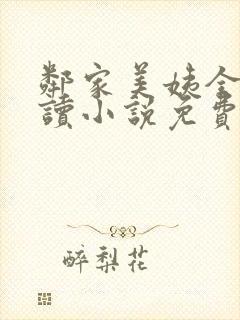 鄰家美姨全
讀小說免費
醉梨花